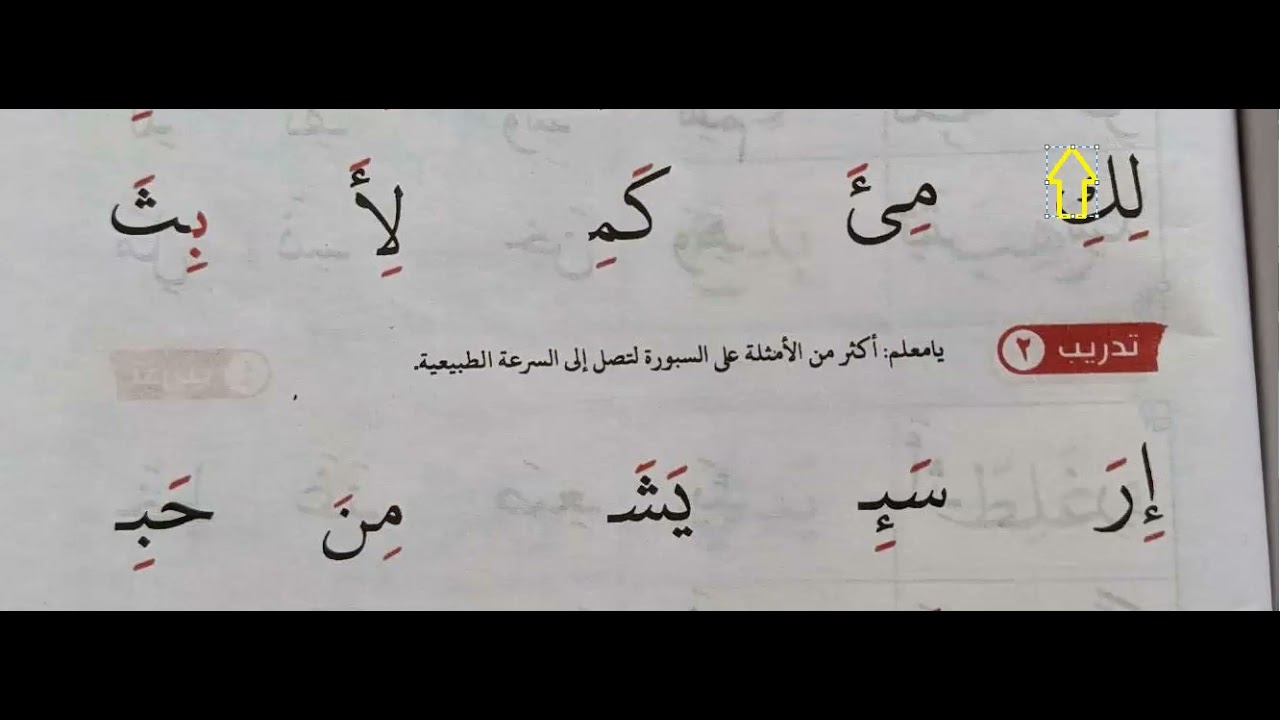 لِكِ مِئَ كَمِ لِأَ بِثَ
تدريب ٢ يا معلم: أكثر من الأمثلة على السبورة لتصل إلى السرعة الطبيعية.
إِرَ سَإِ يَشَـ مِنَ حَبِـ